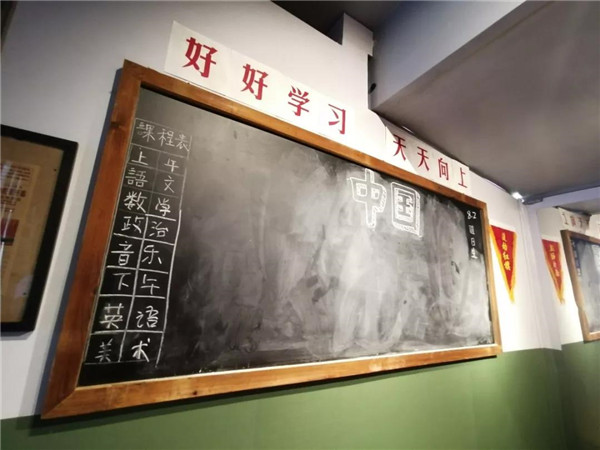 好好学习 天天向上
课程表
上午
語文
数学
政治
音乐
下午
英语
美术
中国
值日生